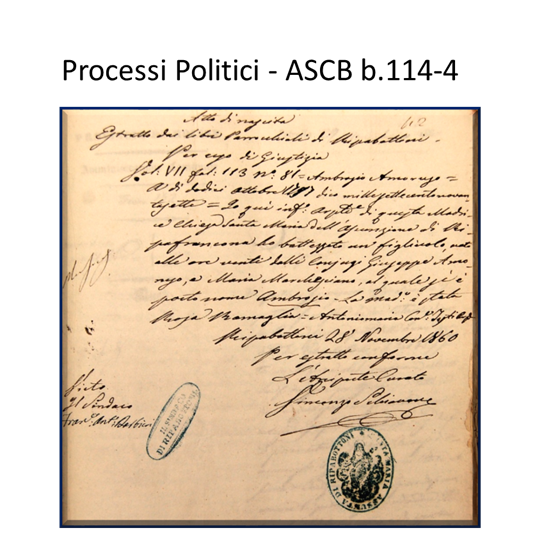 Processi Politici - ASCB b.114-4
Atto di nascita
Estratto dai libri Parrocchiali di Ripabottoni -
Per uso di Giustizia
Vol. VII fol. 113 n.° 81 = Ambrogio Amoruso =
A dì dodici ottobre 1797 dico millesettecentonovan
tasette = Io qui inf.° di questa Madri
ce Chiesa Santa Maria dell'Assunzione di Ri
pafrancona ho battezzato un figliuolo, nato
alle ore venti dalli Conjugi Giuseppe Amo
ruso, e Maria al quale si è
posto nome Ambrogio. La mad.ª è stata
Rosa Ramaglia = Antoniomaria
Ripabottoni 28 Novembre 1860
Per estratto conforme
Curato
Vincenzo
Visto
Il Sindaco
Barbieri
DI RIPABOTTONI
SANTA MARIA ASSUNTA DI RIPABOTTONI